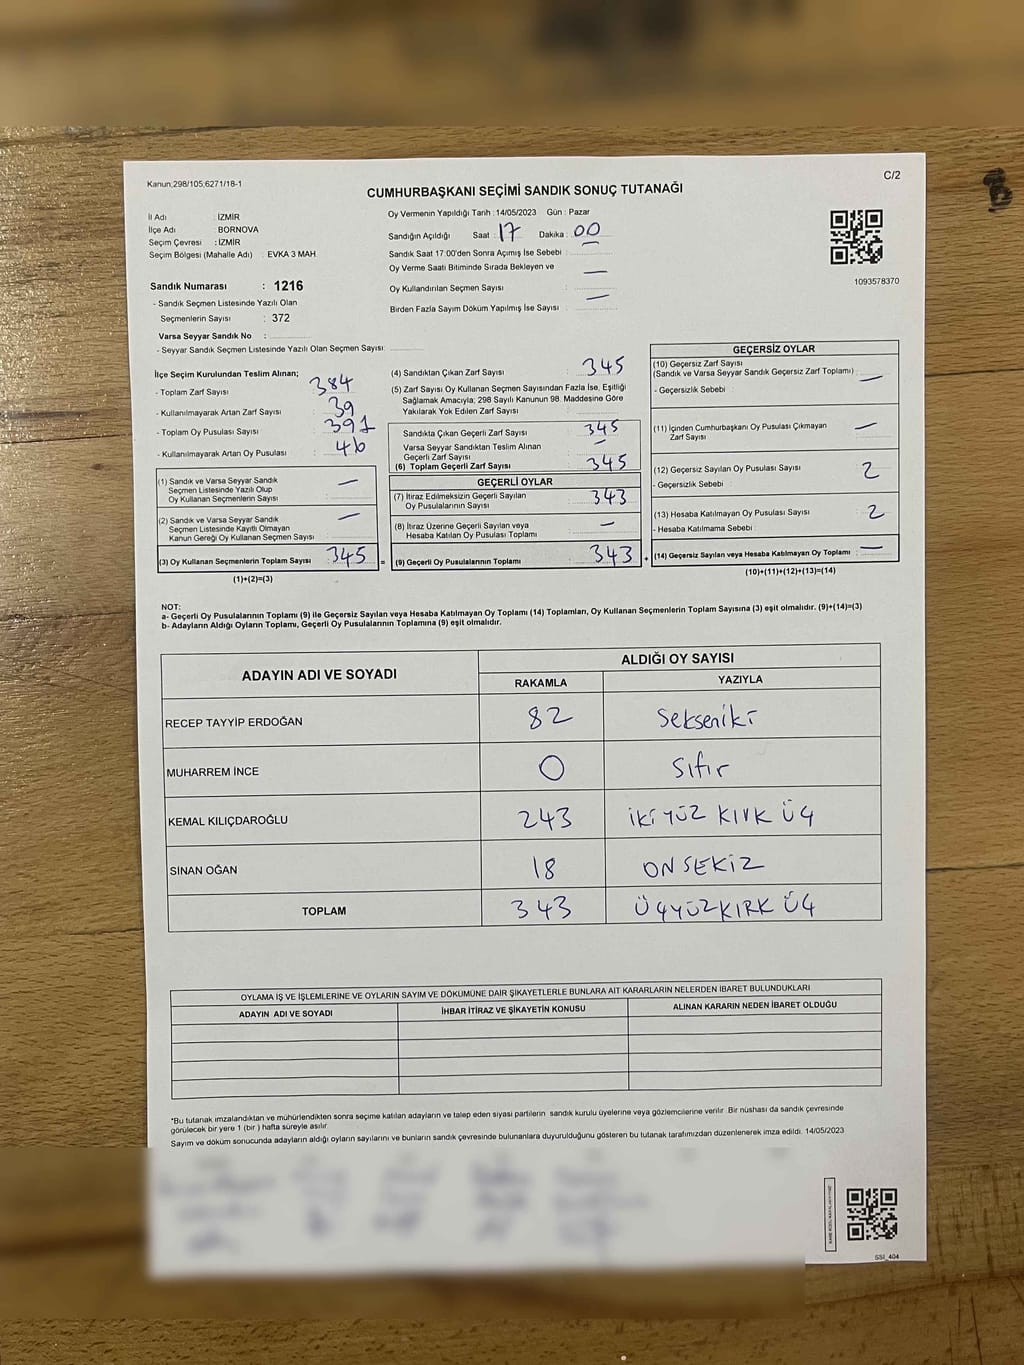 Kanun;298/105;6271/18-1
C/2
CUMHURBAŞKANI SEÇİMİ SANDIK SONUÇ TUTANAĞI
İl Adı : İZMİR
İlçe Adı : BORNOVA
Seçim Çevresi : İZMİR
Seçim Bölgesi (Mahalle Adı) : EVKA 3 MAH
Oy Vermenin Yapıldığı Tarih : 14/05/2023 Gün : Pazar
Sandığın Açıldığı Saat : 17 Dakika : 00
Sandık Saat 17:00'den Sonra Açımış İse Sebebi :
Oy Verme Saati Bitiminde Sırada Bekleyen ve
Oy Kullandırılan Seçmen Sayısı : —
Birden Fazla Sayım Döküm Yapılmış İse Sayısı : —
1093578370
Sandık Numarası : 1216
- Sandık Seçmen Listesinde Yazılı Olan
Seçmenlerin Sayısı : 372
Varsa Seyyar Sandık No :
- Seyyar Sandık Seçmen Listesinde Yazılı Olan Seçmen Sayısı:
İlçe Seçim Kurulundan Teslim Alınan;
- Toplam Zarf Sayısı : 384
- Kullanılmayarak Artan Zarf Sayısı : 39
- Toplam Oy Pusulası Sayısı : 391
- Kullanılmayarak Artan Oy Pusulası : 46
(1) Sandık ve Varsa Seyyar Sandık
Seçmen Listesinde Yazılı Olup
Oy Kullanan Seçmenlerin Sayısı : —
(2) Sandık ve Varsa Seyyar Sandık
Seçmen Listesinde Kayıtlı Olmayan
Kanun Gereği Oy Kullanan Seçmen Sayısı : —
(3) Oy Kullanan Seçmenlerin Toplam Sayısı : 345 =
(1)+(2)=(3)
(4) Sandıktan Çıkan Zarf Sayısı : 345
(5) Zarf Sayısı Oy Kullanan Seçmen Sayısından Fazla İse, Eşitliği
Sağlamak Amacıyla; 298 Sayılı Kanunun 98. Maddesine Göre
Yakılarak Yok Edilen Zarf Sayısı :
Sandıkta Çıkan Geçerli Zarf Sayısı : 345
Varsa Seyyar Sandıktan Teslim Alınan
Geçerli Zarf Sayısı : —
(6) Toplam Geçerli Zarf Sayısı : 345
GEÇERLİ OYLAR
(7) İtiraz Edilmeksizin Geçerli Sayılan
Oy Pusulalarının Sayısı : 343
(8) İtiraz Üzerine Geçerli Sayılan veya
Hesaba Katılan Oy Pusulası Toplamı : —
(9) Geçerli Oy Pusulalarının Toplamı : 343 +
GEÇERSİZ OYLAR
(10) Geçersiz Zarf Sayısı
(Sandık ve Varsa Seyyar Sandık Geçersiz Zarf Toplamı) : —
- Geçersizlik Sebebi :
(11) İçinden Cumhurbaşkanı Oy Pusulası Çıkmayan
Zarf Sayısı : —
(12) Geçersiz Sayılan Oy Pusulası Sayısı : 2
- Geçersizlik Sebebi :
(13) Hesaba Katılmayan Oy Pusulası Sayısı : 2
- Hesaba Katılmama Sebebi :
(14) Geçersiz Sayılan veya Hesaba Katılmayan Oy Toplamı : —
(10)+(11)+(12)+(13)=(14)
NOT:
a- Geçerli Oy Pusulalarının Toplamı (9) ile Geçersiz Sayılan veya Hesaba Katılmayan Oy Toplamı (14) Toplamları, Oy Kullanan Seçmenlerin Toplam Sayısına (3) eşit olmalıdır. (9)+(14)=(3)
b- Adayların Aldığı Oyların Toplamı, Geçerli Oy Pusulalarının Toplamına (9) eşit olmalıdır.
ADAYIN ADI VE SOYADI
ALDIĞI OY SAYISI
RAKAMLA YAZIYLA
RECEP TAYYİP ERDOĞAN 82 Seksenikİ
MUHARREM İNCE 0 Sıfır
KEMAL KILIÇDAROĞLU 243 İKİ YÜZ KIRK ÜÇ
SİNAN OĞAN 18 ON SEKİZ
TOPLAM 343 ÜÇYÜZKIRK ÜÇ
OYLAMA İŞ VE İŞLEMLERİNE VE OYLARIN SAYIM VE DÖKÜMÜNE DAİR ŞİKAYETLERLE BUNLARA AİT KARARLARIN NELERDEN İBARET BULUNDUKLARI
ADAYIN ADI VE SOYADI İHBAR İTİRAZ VE ŞİKAYETİN KONUSU ALINAN KARARIN NEDEN İBARET OLDUĞU
*Bu tutanak imzalandıktan ve mühürlendikten sonra seçime katılan adayların ve talep eden siyasi partilerin sandık kurulu üyelerine veya gözlemcilerine verilir. Bir nüshası da sandık çevresinde
görülecek bir yere 1 (bir ) hafta süreyle asılır.
Sayım ve döküm sonucunda adayların aldığı oyların sayılarını ve bunların sandık çevresinde bulunanlara duyurulduğunu gösteren bu tutanak tarafımızdan düzenlenerek imza edildi. 14/05/2023
SSI_404